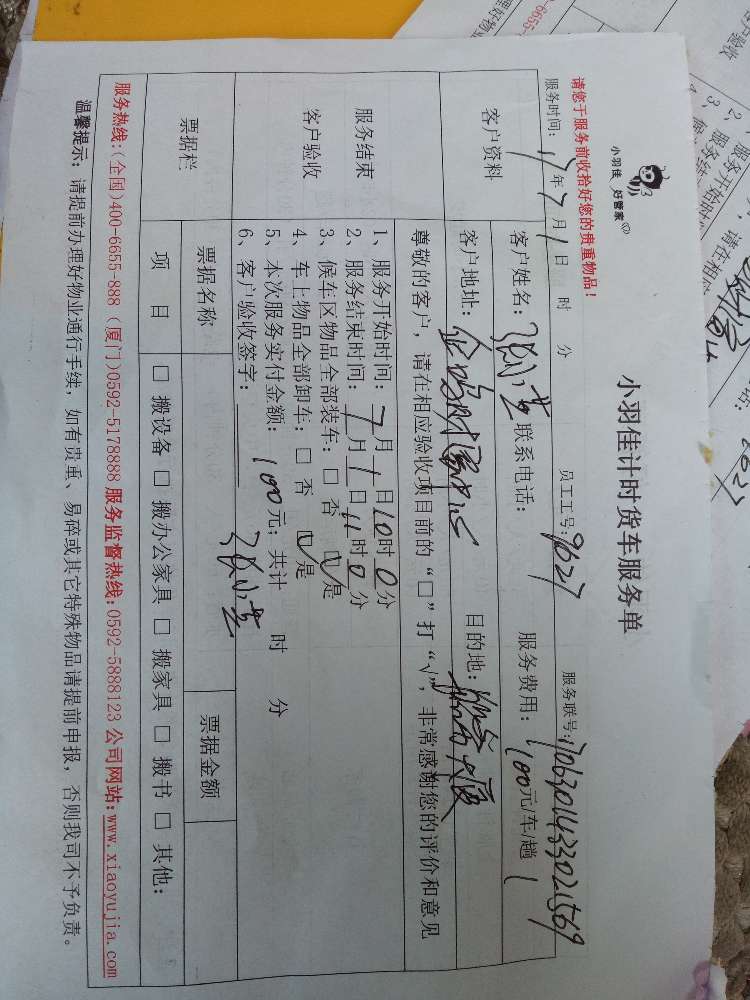 小羽佳 好管家
小羽佳计时货车服务单
请您于服务前收拾好您的贵重物品！
员工工号：9027
服务联号：1706301433021569
服务时间：17年7月1日 时 分
客户资料
客户姓名：张小芸 联系电话： 服务费用：100元/车/趟 1
客户地址： 目的地：
尊敬的客户，请在相应验收项目前的“□”打“√”，非常感谢您的评价和意见
服务结束
客户验收
1、服务开始时间：7月1日10时0分
2、服务结束时间：7月1日11时0分
3、候车区物品全部装车：□ 否 ☑是
4、车上物品全部卸车：□ 否 ☑是
5、本次服务实付金额：100元；共计 时 分
6、客户验收签字：张小芸
票据栏
票据名称 票据金额
项 目 □ 搬设备 □ 搬办公家具 □ 搬家具 □ 搬书 □ 其他：
服务热线:(全国)400-6655-888 (厦门)0592-5178888 服务监督热线:0592-5888123 公司网站:www.xiaoyujia.com
温馨提示：请提前办理好物业通行手续，如有贵重、易碎或其它特殊物品请提前申报，否则我司不予负责。